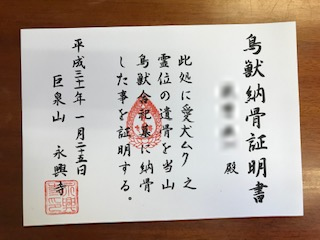 鳥獣納骨証明書
殿
此処に愛犬ムク之
霊位の遺骨を当山
鳥獣合祀墓に納骨
した事を証明する。
平成三十一年一月二十五日
巨泉山 永興寺